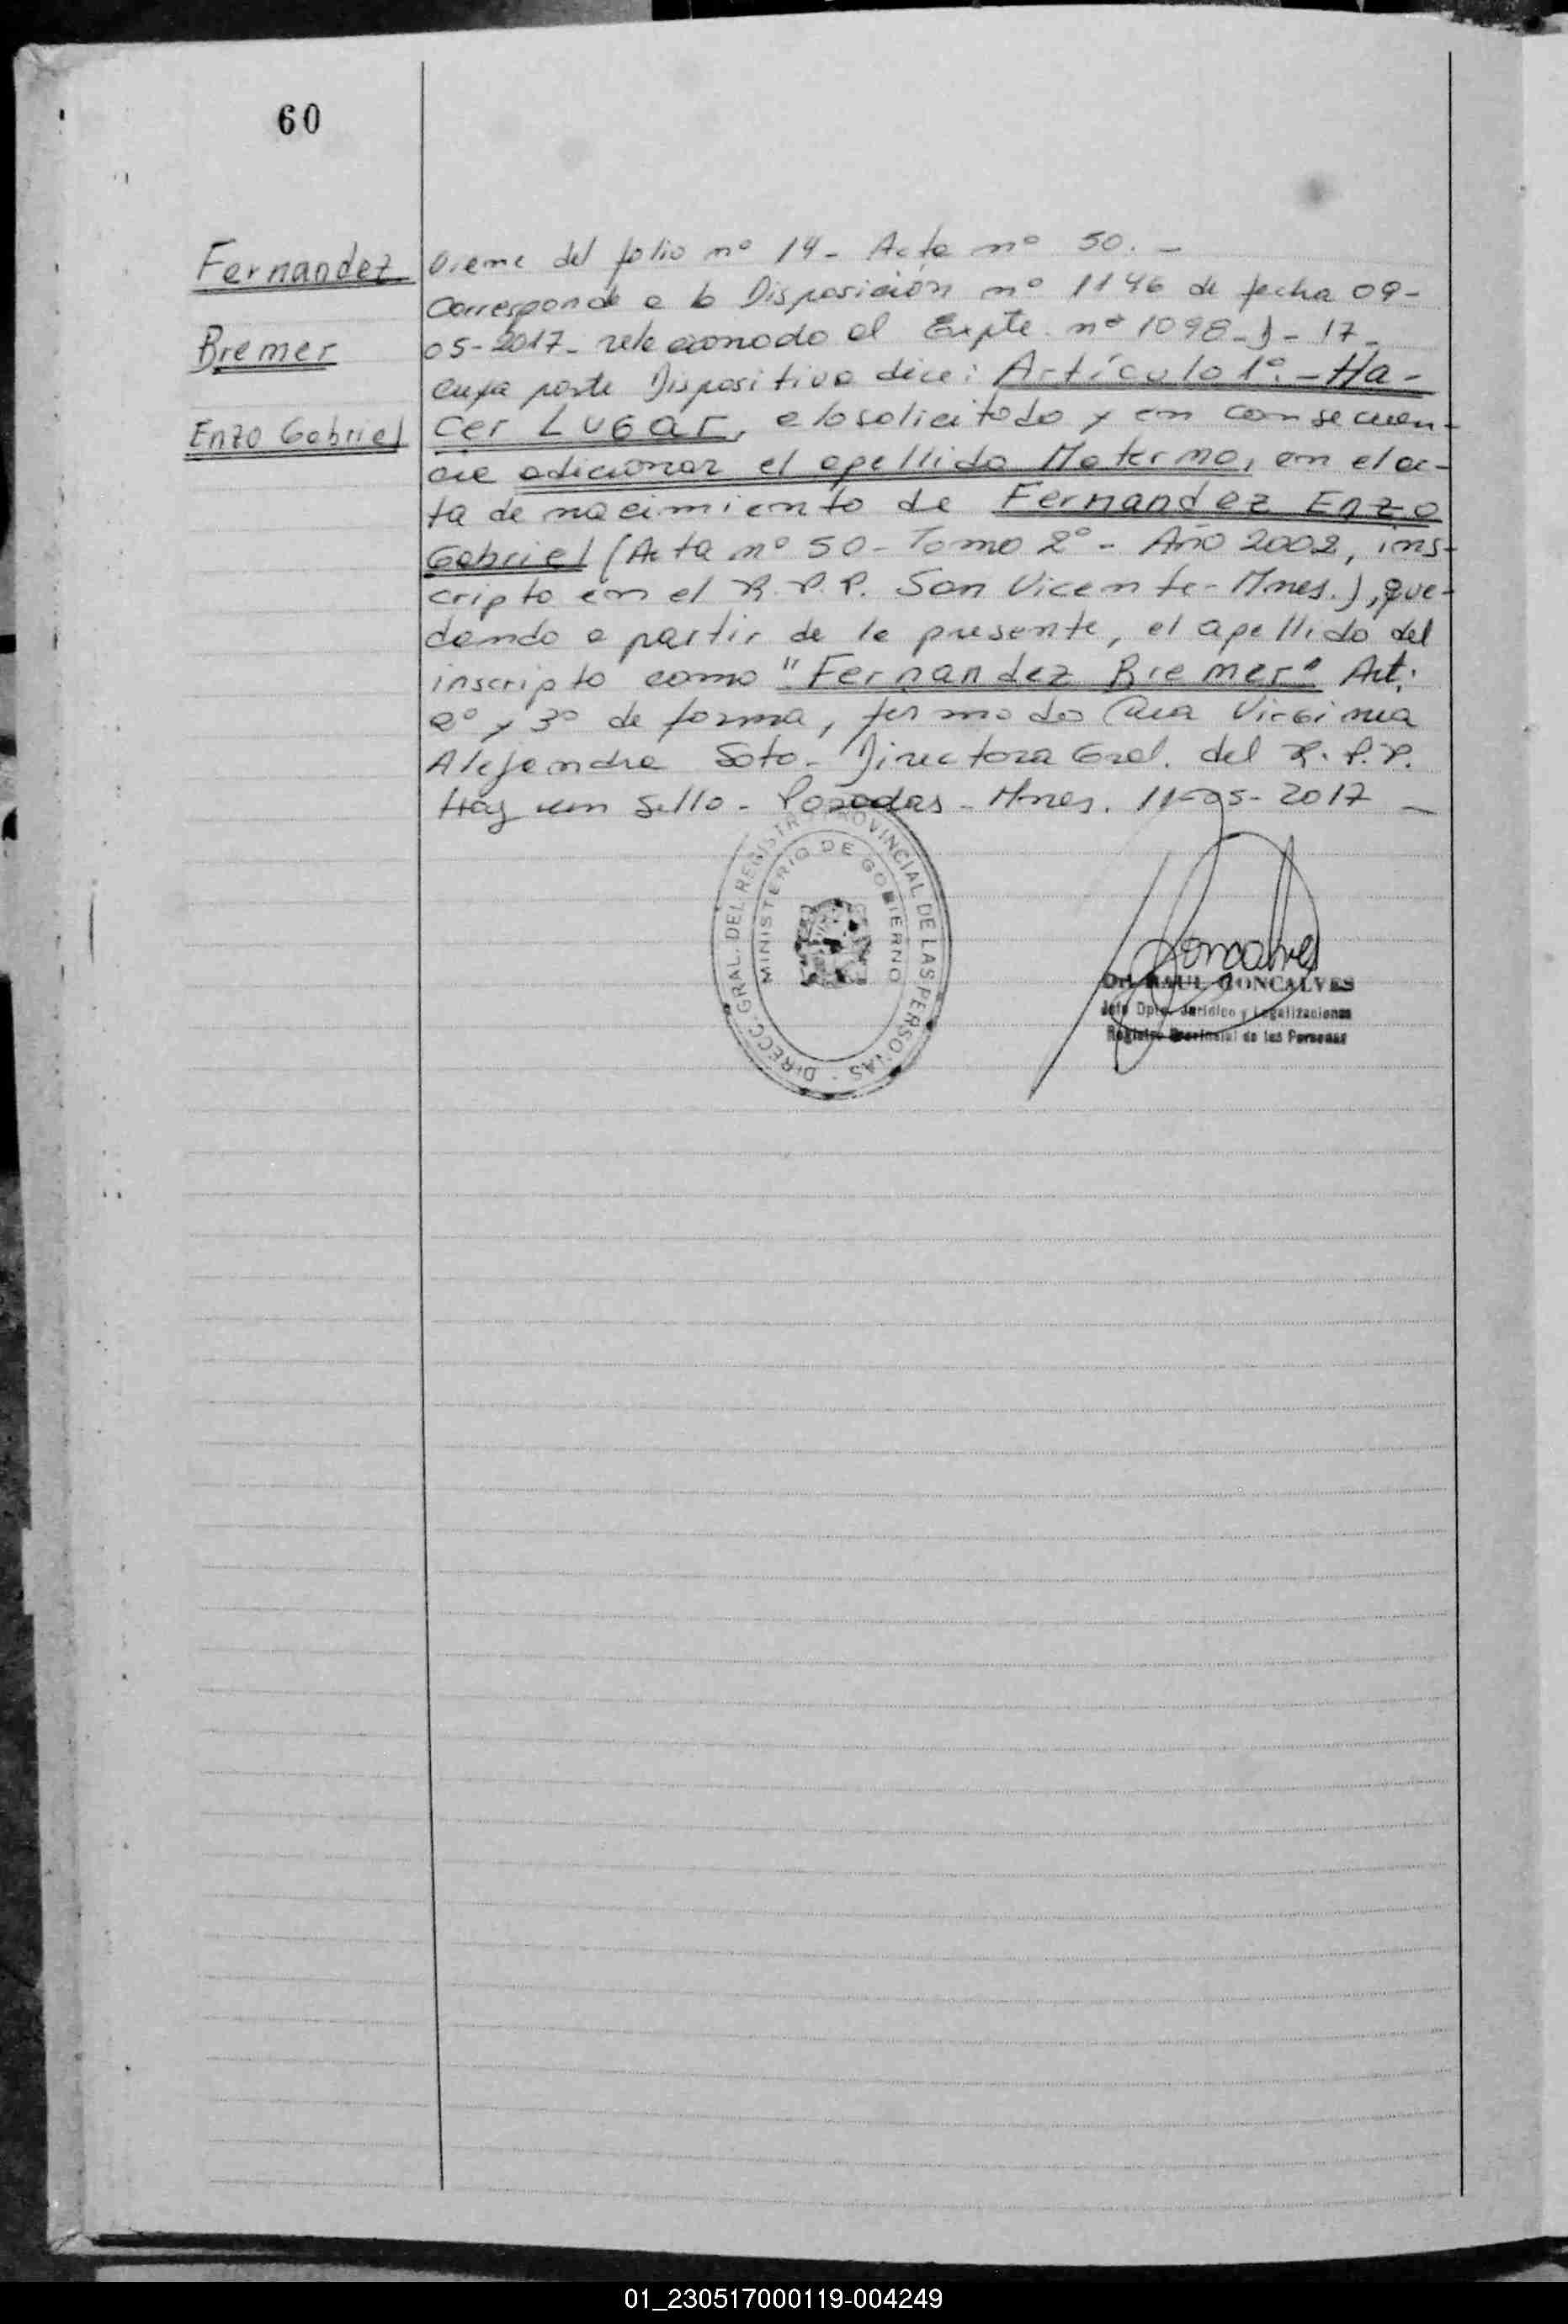 60
Fernandez
Bremer
Enzo Gabriel
Viene del folio nº 14 - Acta nº 50. -
Corresponde a la Disposición nº 1146 de fecha 09-
05-2017 - relacionado al Expte. nº 1098-J-17-
cuya parte Dispositiva dice: Artículo 1º. - Ha-
cer Lugar, a lo solicitado y en consecuen-
cia adicionar el apellido Materno, en el ac-
ta de nacimiento de Fernandez Enzo
Gabriel (Acta nº 50 - Tomo 2º - Año 2002, ins-
cripto en el R.P.P. San Vicente - Mnes.), que-
dando a partir de la presente, el apellido del
inscripto como "Fernandez Bremer" Art:
2º y 3º de forma, firmado Virginia
Alejandra Soto - Directora Gral. del R.P.P.
Hay un Sello - Posadas - Mnes. 11-05-2017 -
DIRECC. GRAL. DEL REGISTRO PROVINCIAL DE LAS PERSONAS
MINISTERIO DE GOBIERNO
Goncalves
Dr. RAUL GONCALVES
Jefe Dpto. Jurídico y Legalizaciones
Registro Provincial de las Personas
01_230517000119-004249